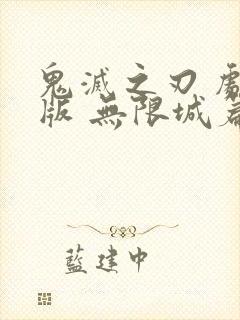 鬼滅之刃 劇
版 無限城篇
藍建中